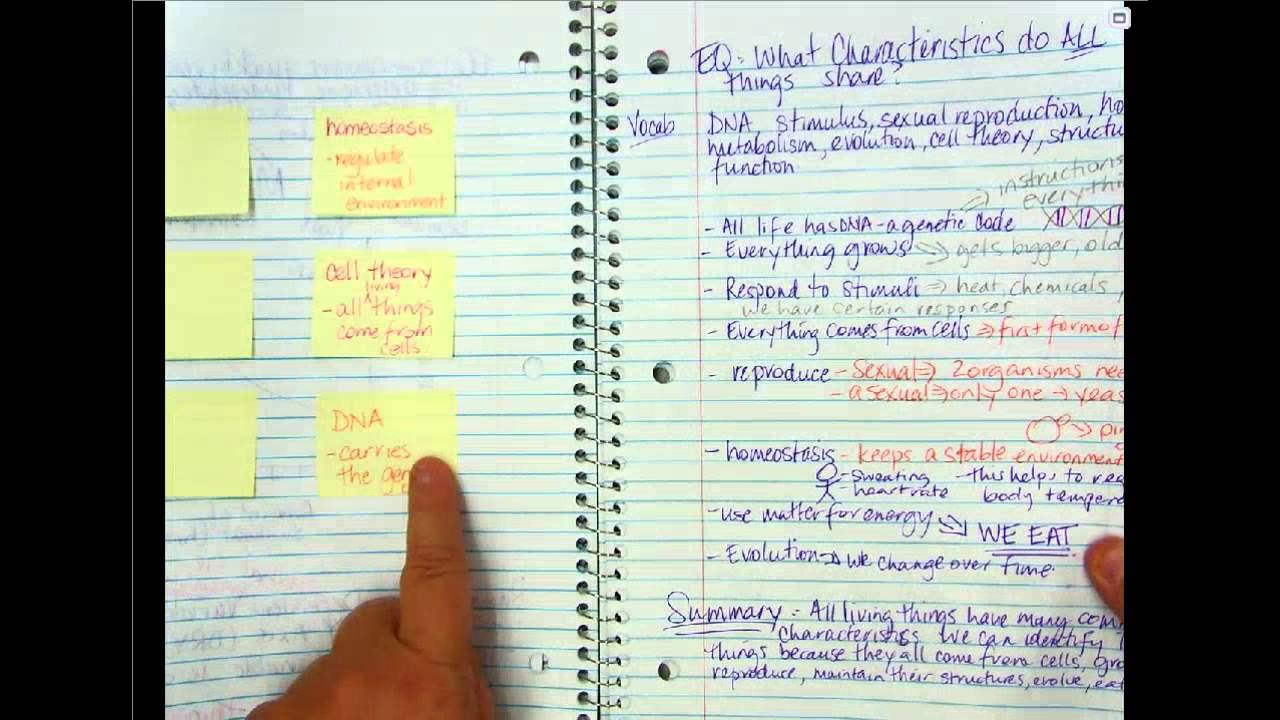 homeostasis
-regulate
internal
environment
cell theory
living
-all ^ things
come from
cells
DNA
-carries
the
EQ: What Characteristics do ALL
things share?
Vocab
DNA, stimulus, sexual reproduction,
metabolism, evolution, cell theory,
function
instructions
- All life has DNA - a genetic code
- Everything grows => gets bigger,
- Respond to stimuli => heat, chemicals,
we have certain responses
- Everything comes from cells => first form of
- reproduce - Sexual => 2 organisms
- asexual => only one ->
- homeostasis - keeps a stable environment
- sweating - this helps to
- heart rate body
- use matter for energy => WE EAT
- Evolution -> We change over time.
Summary - All living things have many
characteristics. We can identify
things because they all come from cells,
reproduce, maintain their structures, evolve,